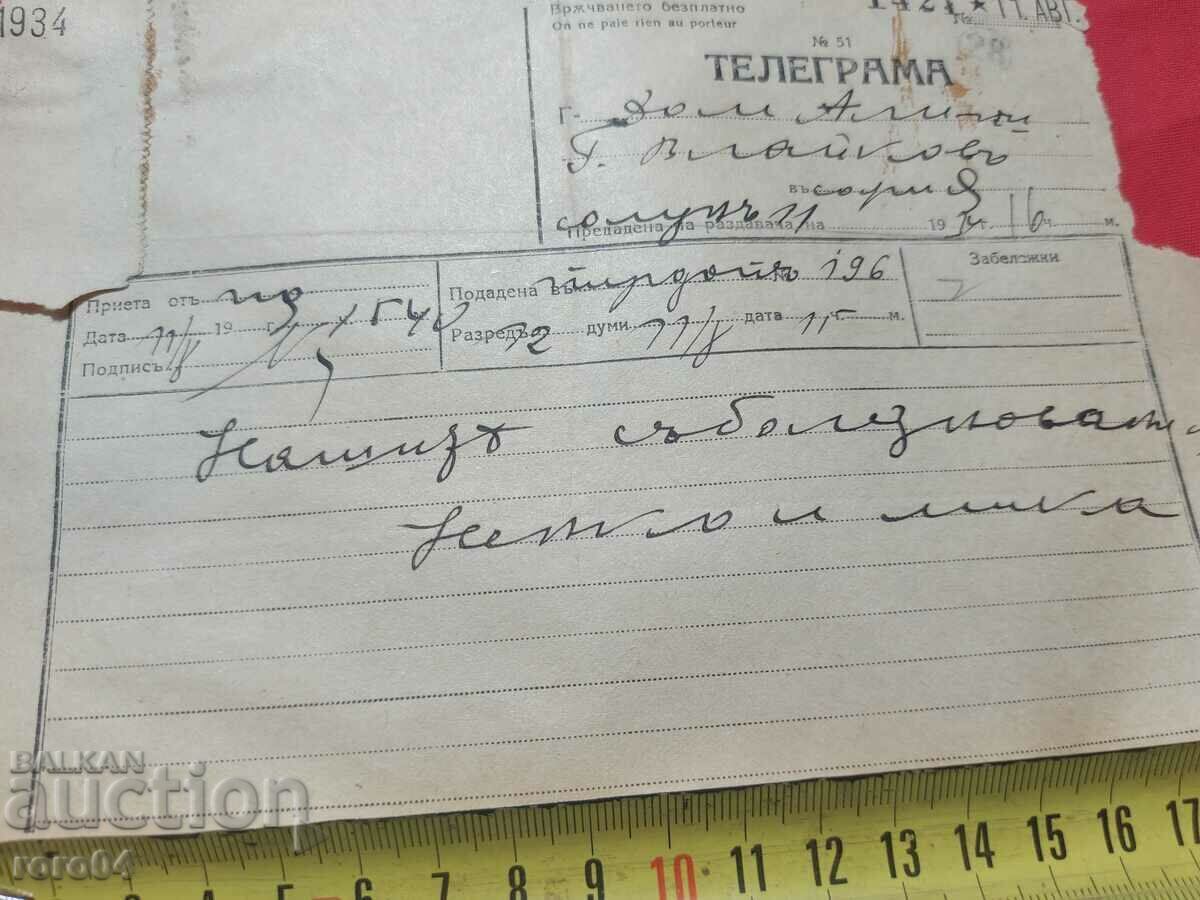 1934
Врѫчването безплатно
On ne paie rien au porteur
1421 № ★ 11. АВГ.
№ 51
ТЕЛЕГРАМА
Г- Дом
Г. Влайковъ
въ София
Солунъ 11
Предадена на раздавача на 1934 г. 16 ч. м.
Приета отъ
Дата 11/8 19 г. 1540
Подпись
Подадена въ Пирдопъ № 196
Разредъ 12 думи 11/8 дата 115 г. м.
Забележки
Нашитѣ съболезнования
и Мика
BALKAN
auction
roro04
5 6 7 8 9 10 11 12 13 14 15 16 17